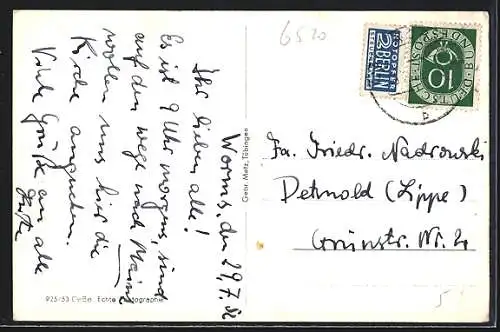 6520
Worms, den 29.7.52
Ihr lieben alle!
Es ist 9 Uhr morgens, sind
auf dem Wege nach Mainz
wollen uns hier die
Kirche ansehen.
Viele Grüße an alle
Gebr. Metz, Tübingen
925/53 Echte Photographie
NOTOPFER
2 BERLIN
STEUERMARKE
DEUTSCHE BUNDESPOST
10
Fa. Friedr. Nadrowski
Detmold (Lippe)
Grünstr. Nr. 4
5